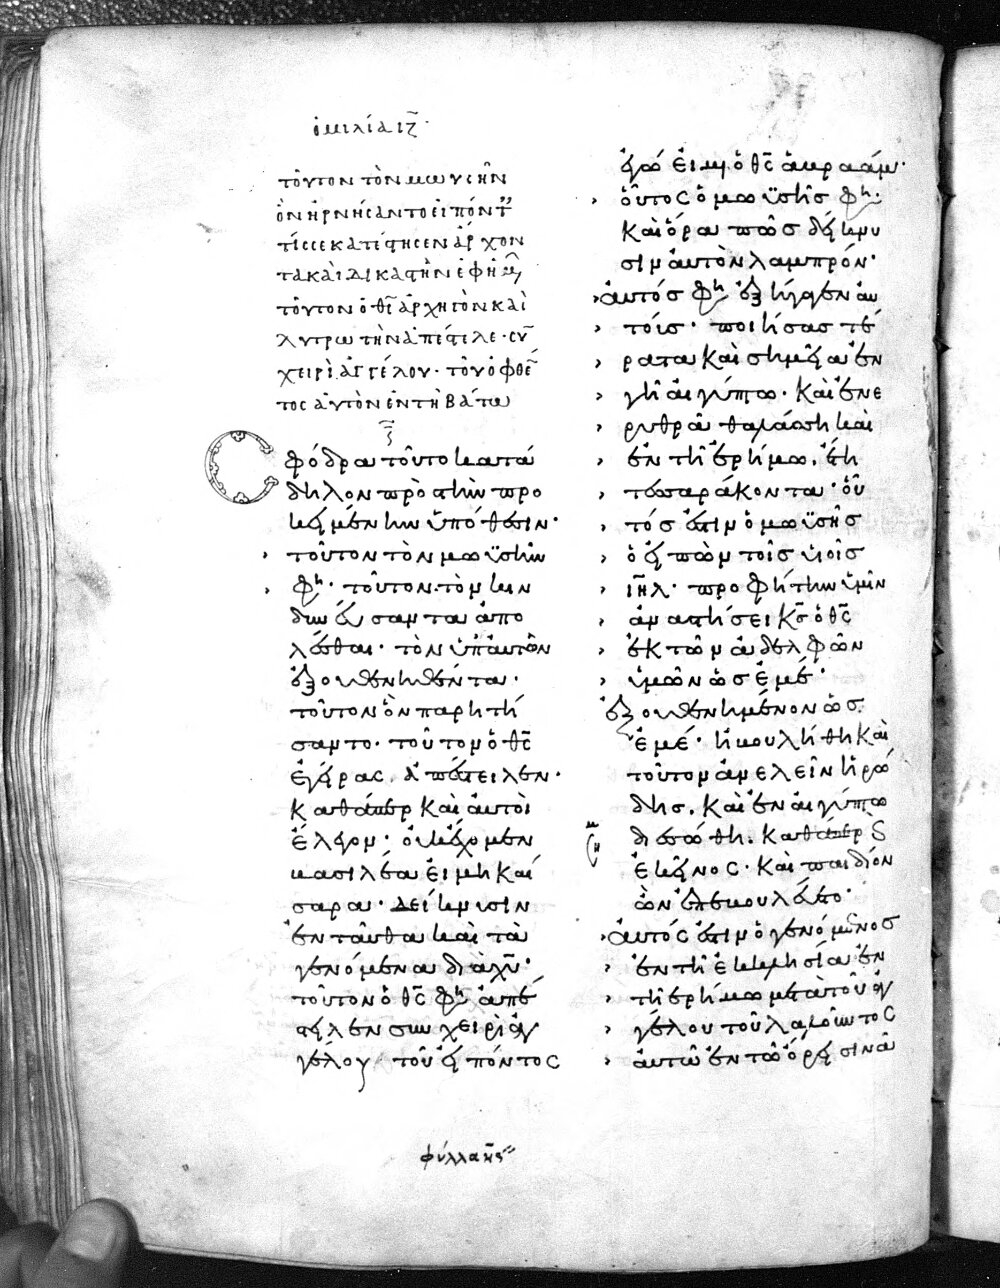 ὁμιλία ιζ
τοῦτον τὸν μωυσῆν
ὃν ἠρνήσαντο εἰπόντ
τίς σε κατέστησεν ἄρχον
τα καὶ δικαστὴν ἐφ ἡμ
τοῦτον ὁ θς ἀρχηγὸν καὶ
λυτρωτὴν ἀπέστειλε· σὺ
χειρὶ ἀγγέλου· τοῦ ὀφθέ
τος αὐτὸν ἐν τῇ βάτω
Σφόδρα τοῦτο κατά
δηλον πρὸς τὴν προ
κειμένην ὑπόθεσιν·
τοῦτον τὸν μωϋσῆν
φη· τοῦτον· τὸν κιν
δυνεύσαντα ἀπο
λέσθαι· τὸν ὑπ αὐτῶν
ἐξουθενηθέντα·
τοῦτον ὃν παρητή
σαντο· τοῦτον ὁ θς
ἐγείρας, ἀπέστειλεν·
καθάπερ καὶ αὐτοὶ
ἔλεγον· οὐκ ἔχομεν
βασιλέα εἰ μὴ καί
σαρα· δείκνυσιν
ἐνταῦθα καὶ τὰ
γενόμενα διὰ χυ·
τοῦτον ὁ θς φη ἀπέ
στειλεν σὺν χειρὶ ἀγ
γέλου τοῦ εἰπόντος
ἐγώ εἰμι ὁ θς ἀβραάμ·
οὗτος ὁ μωϋσῆς φη·
καὶ ὅρα πῶς δείκνυ
σιν αὐτὸν λαμπρόν·
αὐτός φη ἐξήγαγεν αὐ
τοίς· ποιήσας τέ
ρατα καὶ σημεῖα ἐν
γῆ αἰγύπτω· καὶ ἐν ἐ
ρυθρᾶ θαλάσση καὶ
ἐν τῇ ἐρήμω, ἔτη
τεσσαράκοντα· οὗ
τός ἐστιν ὁ μωϋσῆς
ὁ εἰπὼν τοῖς υἱοῖς
ιηλ· προφήτην ὑμῖν
ἀναστήσει κς ὁ θς
ἐκ τῶν ἀδελφῶν
ὑμῶν ὡς ἐμέ·
ἐξουθενημένον ὡς
ἐμέ· ἠβουλήθη καὶ
τοῦτον ἀνελεῖν ἡρώ
δης. καὶ ἐν αἰγύπτω
διεσώθη. καθάπερ
ἐκεῖνος· καὶ παιδίον
ὢν ἐπεβουλεύετο·
αὐτός ἐστιν ὁ γενόμενος
ἐν τῇ ἐκκλησία ἐν
τῇ ἐρήμω μετὰ τοῦ ἀγ
γέλου τοῦ λαλοῦντος
αὐτῶ ἐν τῶ ὄρει σινᾶ